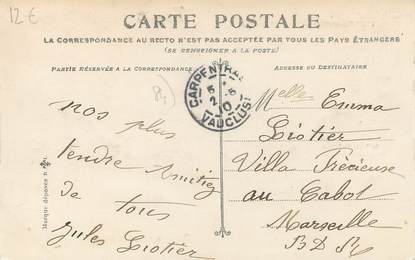 12€
CARTE POSTALE
LA CORRESPONDANCE AU RECTO N'EST PAS ACCEPTÉE PAR TOUS LES PAYS ÉTRANGERS
(SE RENSEIGNER A LA POSTE)
PARTIE RÉSERVÉE A LA CORRESPONDANCE
ADRESSE DU DESTINATAIRE
CARPENTRAS
2-5
10
VAUCLUSE
nos plus
tendre amitiez
de tous
Jules Liotier
Melles Emma
Liotier
Villa Précieuse
au Cabot
Marseille
B D R
Marque déposée